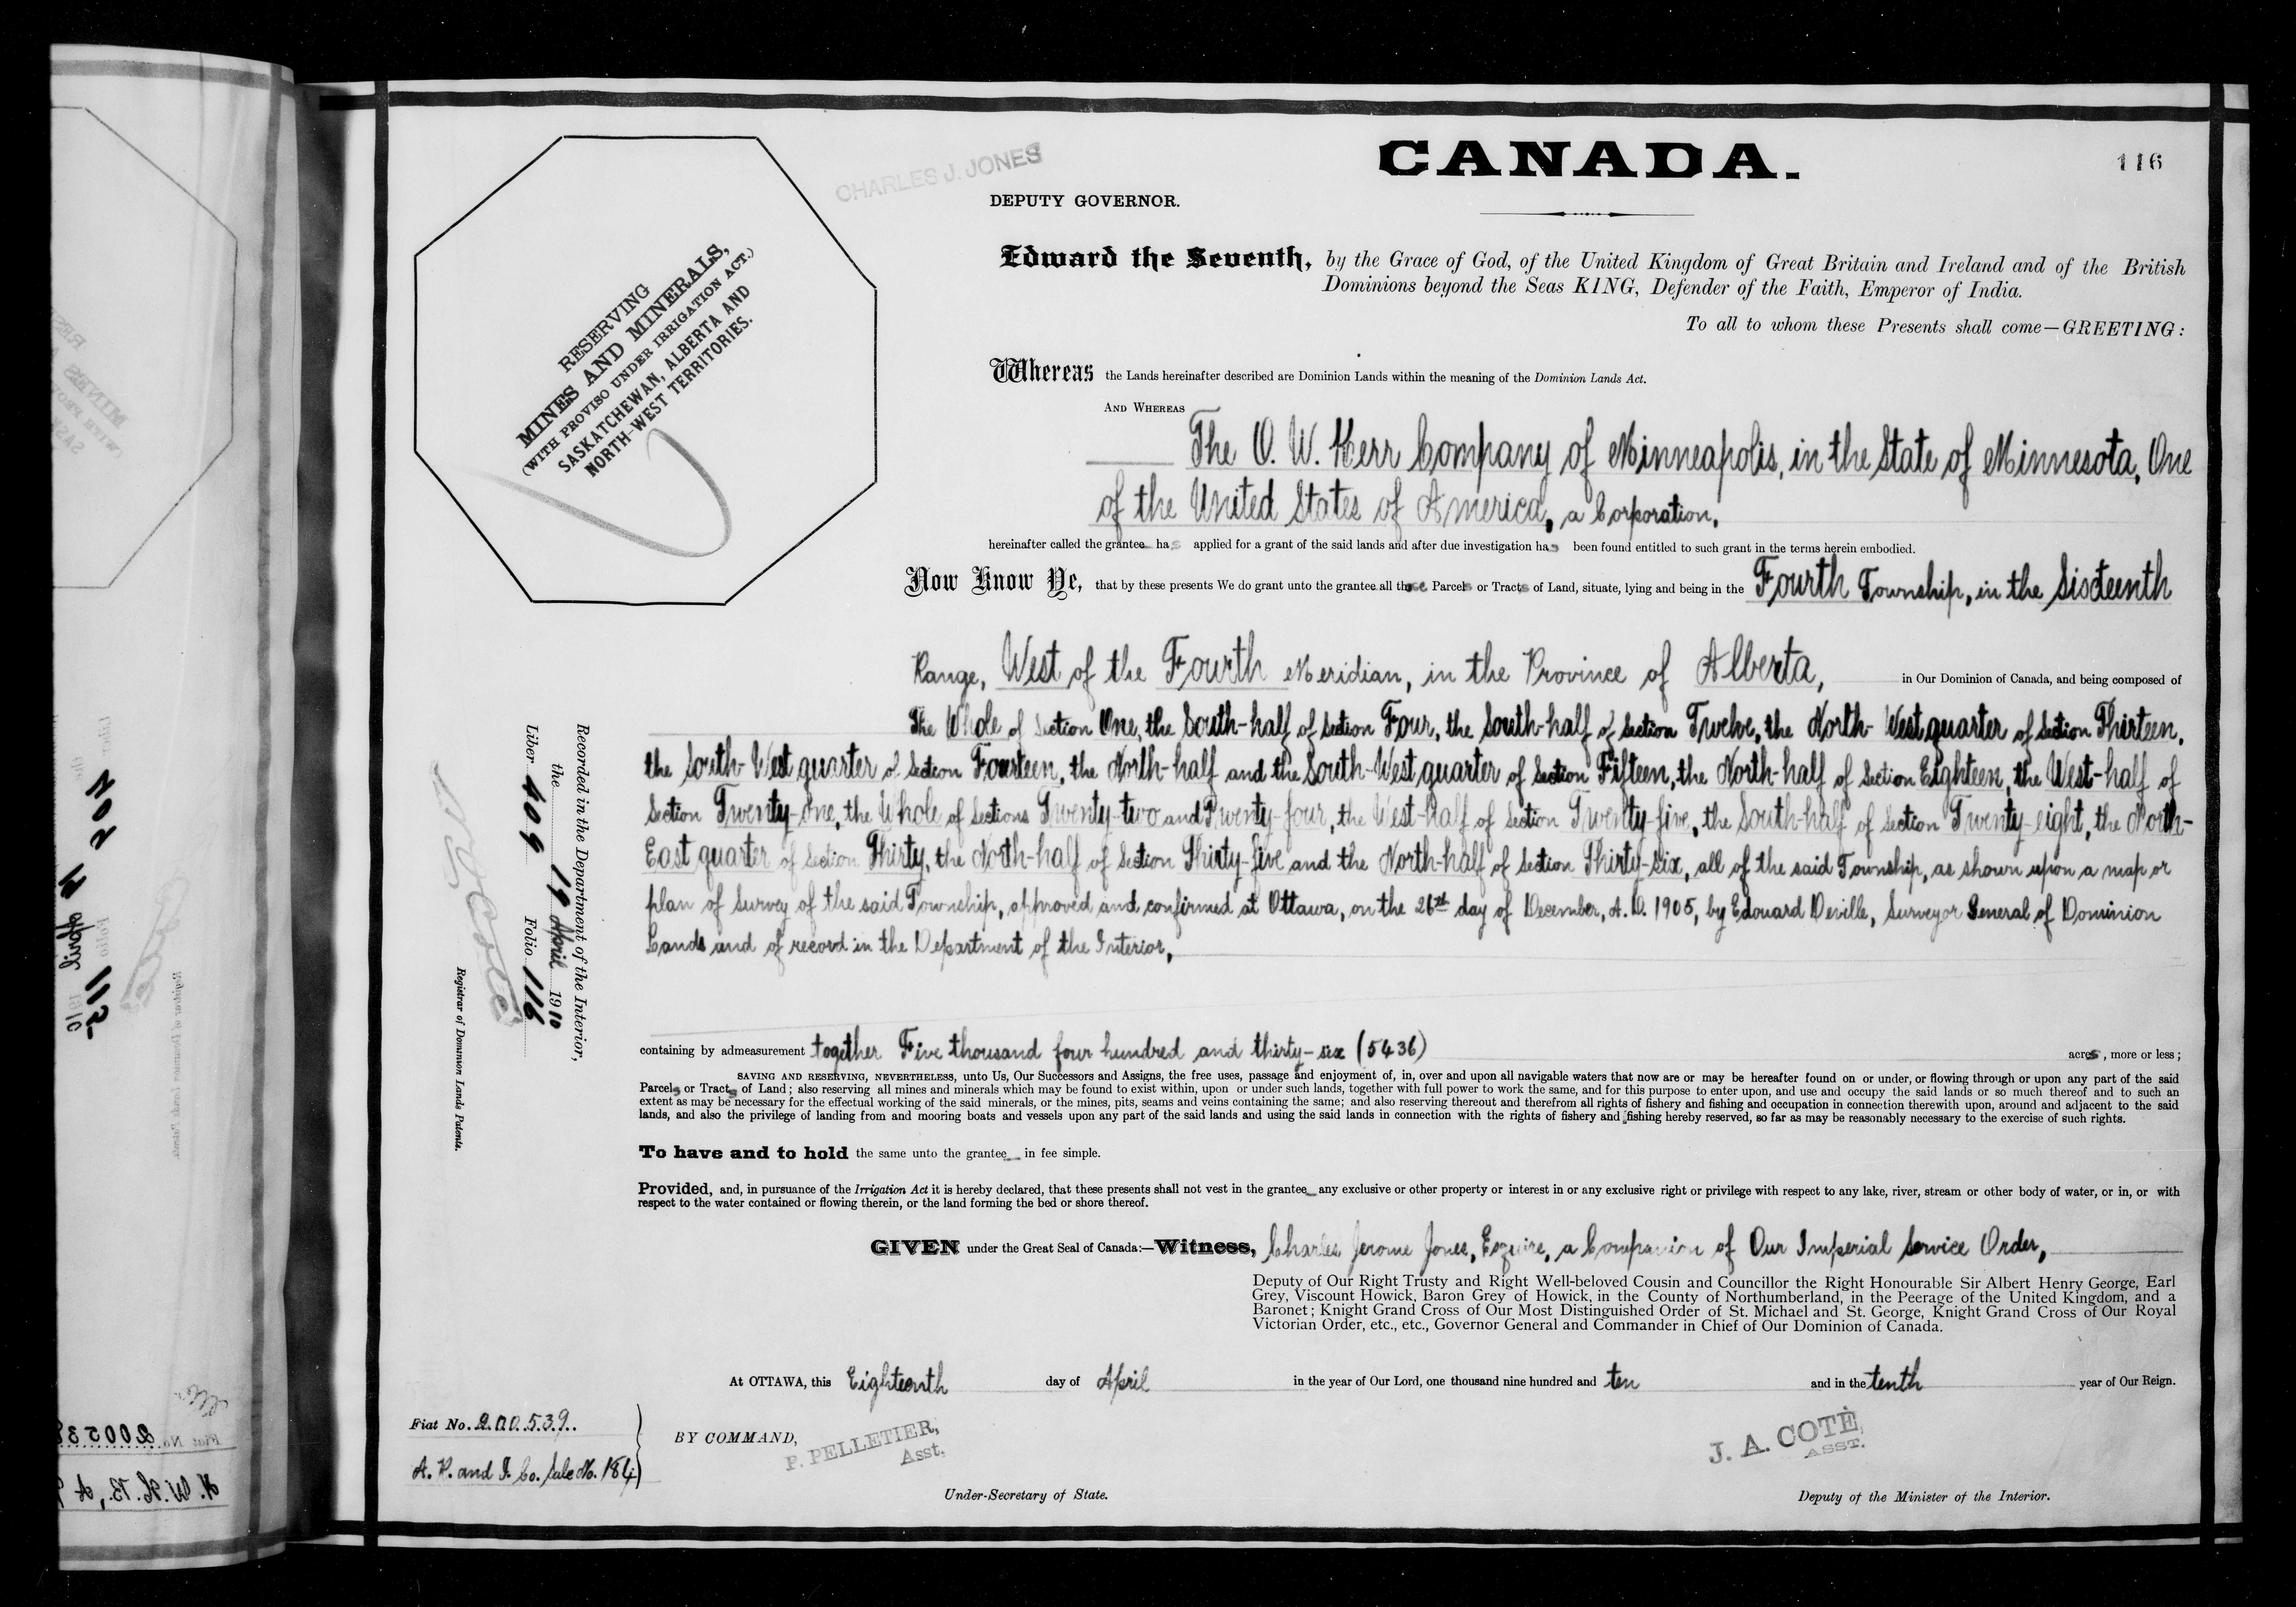 CANADA.
116
CHARLES J. JONES
DEPUTY GOVERNOR.
RESERVING
MINES AND MINERALS,
(WITH PROVISO UNDER IRRIGATION ACT.)
SASKATCHEWAN, ALBERTA AND
NORTH-WEST TERRITORIES.
Edward the Seventh, by the Grace of God, of the United Kingdom of Great Britain and Ireland and of the British
Dominions beyond the Seas KING, Defender of the Faith, Emperor of India.
To all to whom these Presents shall come—GREETING:
Whereas the Lands hereinafter described are Dominion Lands within the meaning of the Dominion Lands Act.
AND WHEREAS
The O. W. Kerr Company of Minneapolis, in the State of Minnesota, One
of the United States of America, a Corporation,
hereinafter called the grantee has applied for a grant of the said lands and after due investigation has been found entitled to such grant in the terms herein embodied.
Now Know Ye, that by these presents We do grant unto the grantee all those Parcels or Tracts of Land, situate, lying and being in the Fourth Township, in the Sixteenth
Range, West of the Fourth Meridian, in the Province of Alberta, in Our Dominion of Canada, and being composed of
The Whole of Section One, the South-half of Section Four, the South-half of Section Twelve, the North-West quarter of Section Thirteen,
the South-West quarter of Section Fourteen, the North-half and the South-West quarter of Section Fifteen, the North-half of Section Eighteen, the West-half of
Section Twenty-one, the Whole of Sections Twenty-two and Twenty-four, the West-half of Section Twenty-five, the South-half of Section Twenty-eight, the North-
East quarter of Section Thirty, the North-half of Section Thirty-five and the North-half of Section Thirty-six, all of the said Township, as shown upon a map or
plan of Survey of the said Township, approved and confirmed at Ottawa, on the 26th day of December, A. D. 1905, by Edouard Deville, Surveyor General of Dominion
Lands and of record in the Department of the Interior,
containing by admeasurement together Five thousand four hundred and thirty-six (5436) acres, more or less;
SAVING AND RESERVING, NEVERTHELESS, unto Us, Our Successors and Assigns, the free uses, passage and enjoyment of, in, over and upon all navigable waters that now are or may be hereafter found on or under, or flowing through or upon any part of the said
Parcels or Tracts of Land; also reserving all mines and minerals which may be found to exist within, upon or under such lands, together with full power to work the same, and for this purpose to enter upon, and use and occupy the said lands or so much thereof and to such an
extent as may be necessary for the effectual working of the said minerals, or the mines, pits, seams and veins containing the same; and also reserving thereout and therefrom all rights of fishery and fishing and occupation in connection therewith upon, around and adjacent to the said
lands, and also the privilege of landing from and mooring boats and vessels upon any part of the said lands and using the said lands in connection with the rights of fishery and fishing hereby reserved, so far as may be reasonably necessary to the exercise of such rights.
To have and to hold the same unto the grantee in fee simple.
Provided, and, in pursuance of the Irrigation Act it is hereby declared, that these presents shall not vest in the grantee any exclusive or other property or interest in or any exclusive right or privilege with respect to any lake, river, stream or other body of water, or in, or with
respect to the water contained or flowing therein, or the land forming the bed or shore thereof.
GIVEN under the Great Seal of Canada:—Witness, Charles Jerome Jones, Esquire, a Companion of Our Imperial Service Order,
Deputy of Our Right Trusty and Right Well-beloved Cousin and Councillor the Right Honourable Sir Albert Henry George, Earl
Grey, Viscount Howick, Baron Grey of Howick, in the County of Northumberland, in the Peerage of the United Kingdom, and a
Baronet; Knight Grand Cross of Our Most Distinguished Order of St. Michael and St. George, Knight Grand Cross of Our Royal
Victorian Order, etc., etc., Governor General and Commander in Chief of Our Dominion of Canada.
At OTTAWA, this Eighteenth day of April in the year of Our Lord, one thousand nine hundred and ten and in the tenth year of Our Reign.
BY COMMAND,
P. PELLETIER,
Asst.
Under-Secretary of State.
J. A. COTÉ,
ASST.
Deputy of the Minister of the Interior.
Recorded in the Department of the Interior,
the 19 April 1910
Liber 409 Folio 116
N. O. Coté
Registrar of Dominion Lands Patents.
Fiat No. 200539.
A. R. and I. Co. Sale No. 184